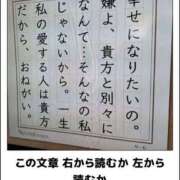 幸せになりたいの。
嫌よ、貴方と別々に
なんて…そんなの私
じゃないから。一生
私の愛する人は貴方
だから、おねがい。
この文章 右から読むか 左から
読むか